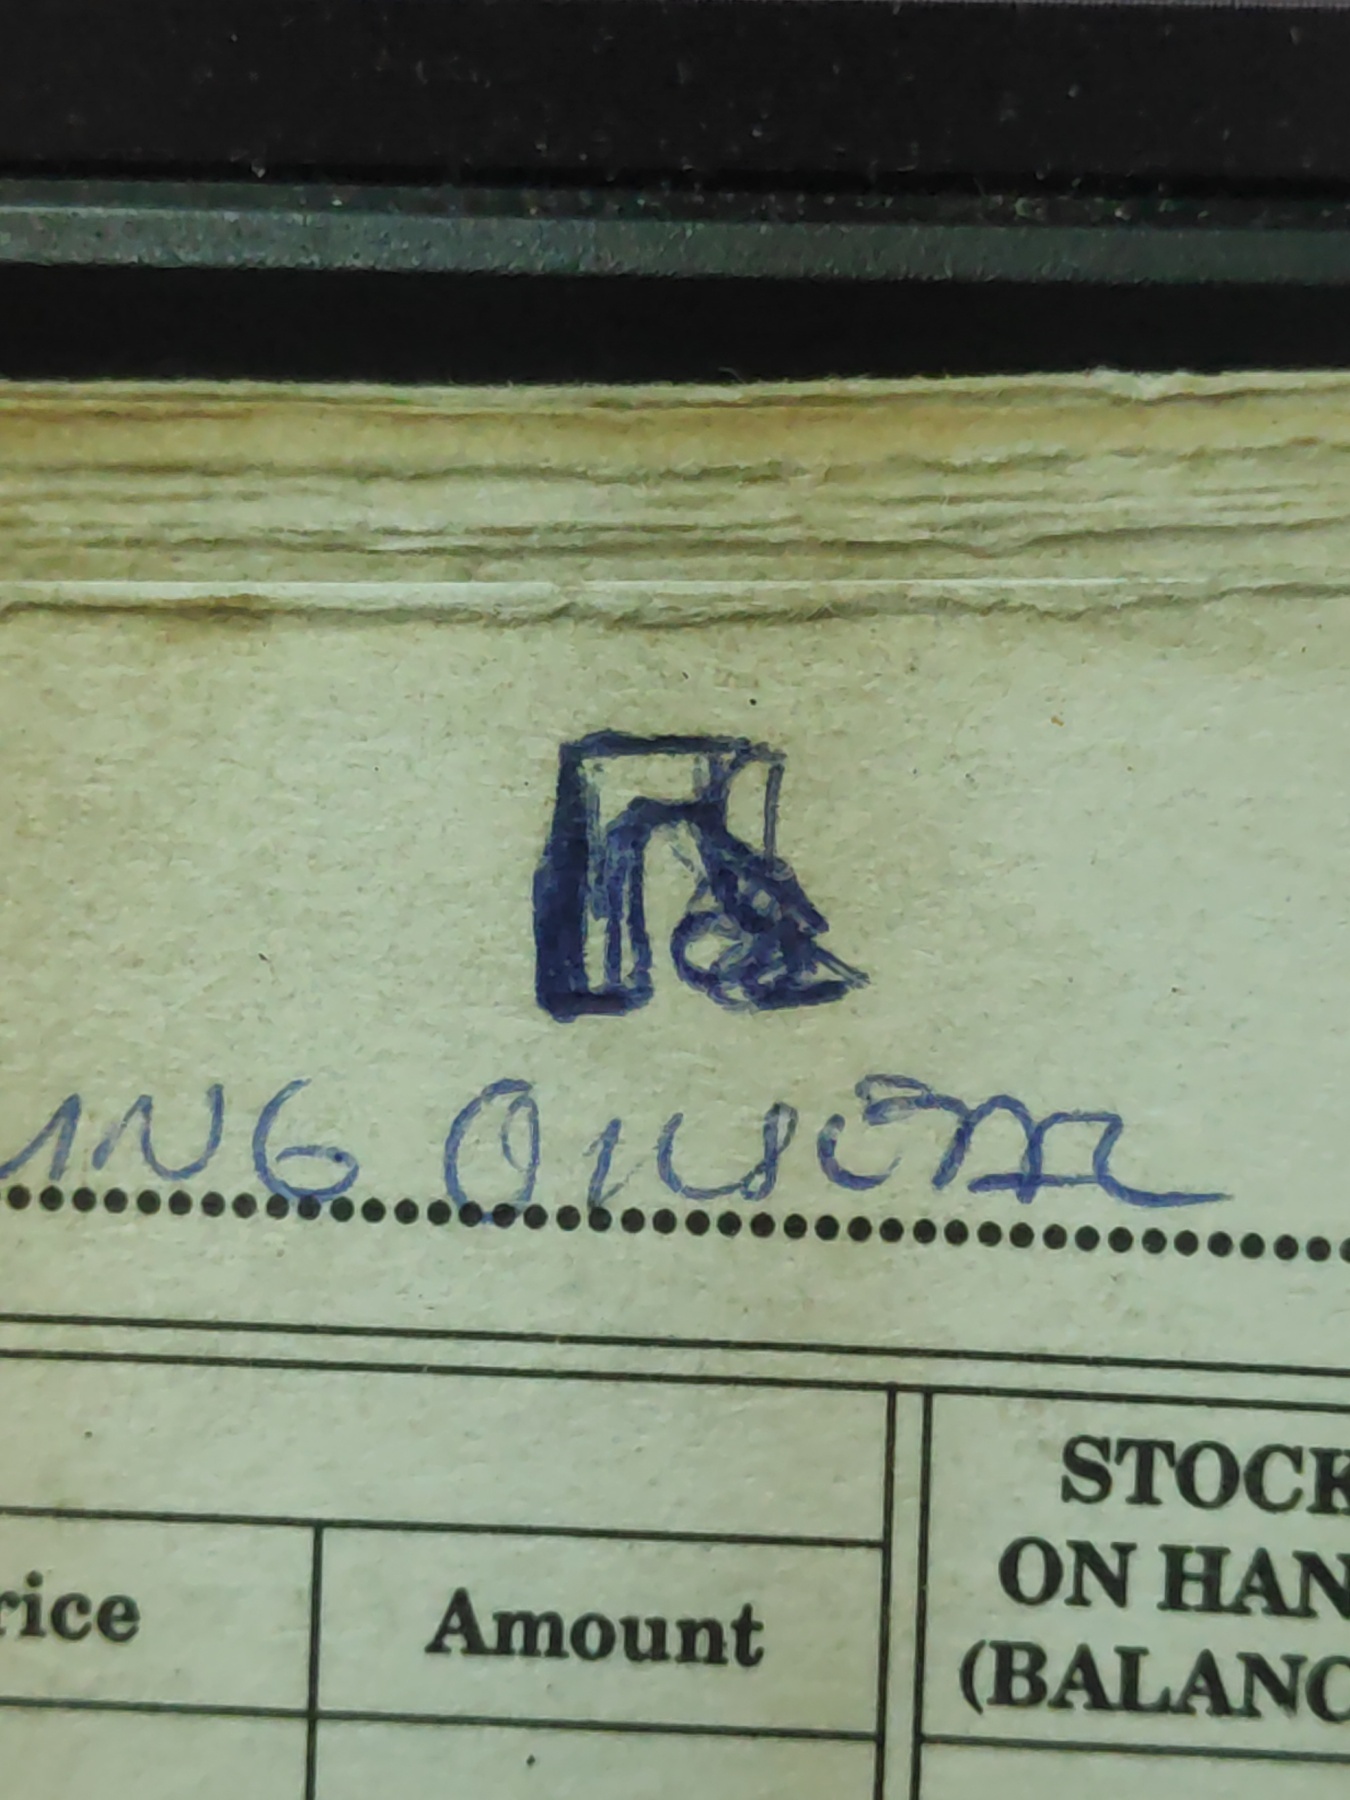 ING
rice
Amount
STOCK
ON HAN
(BALANC